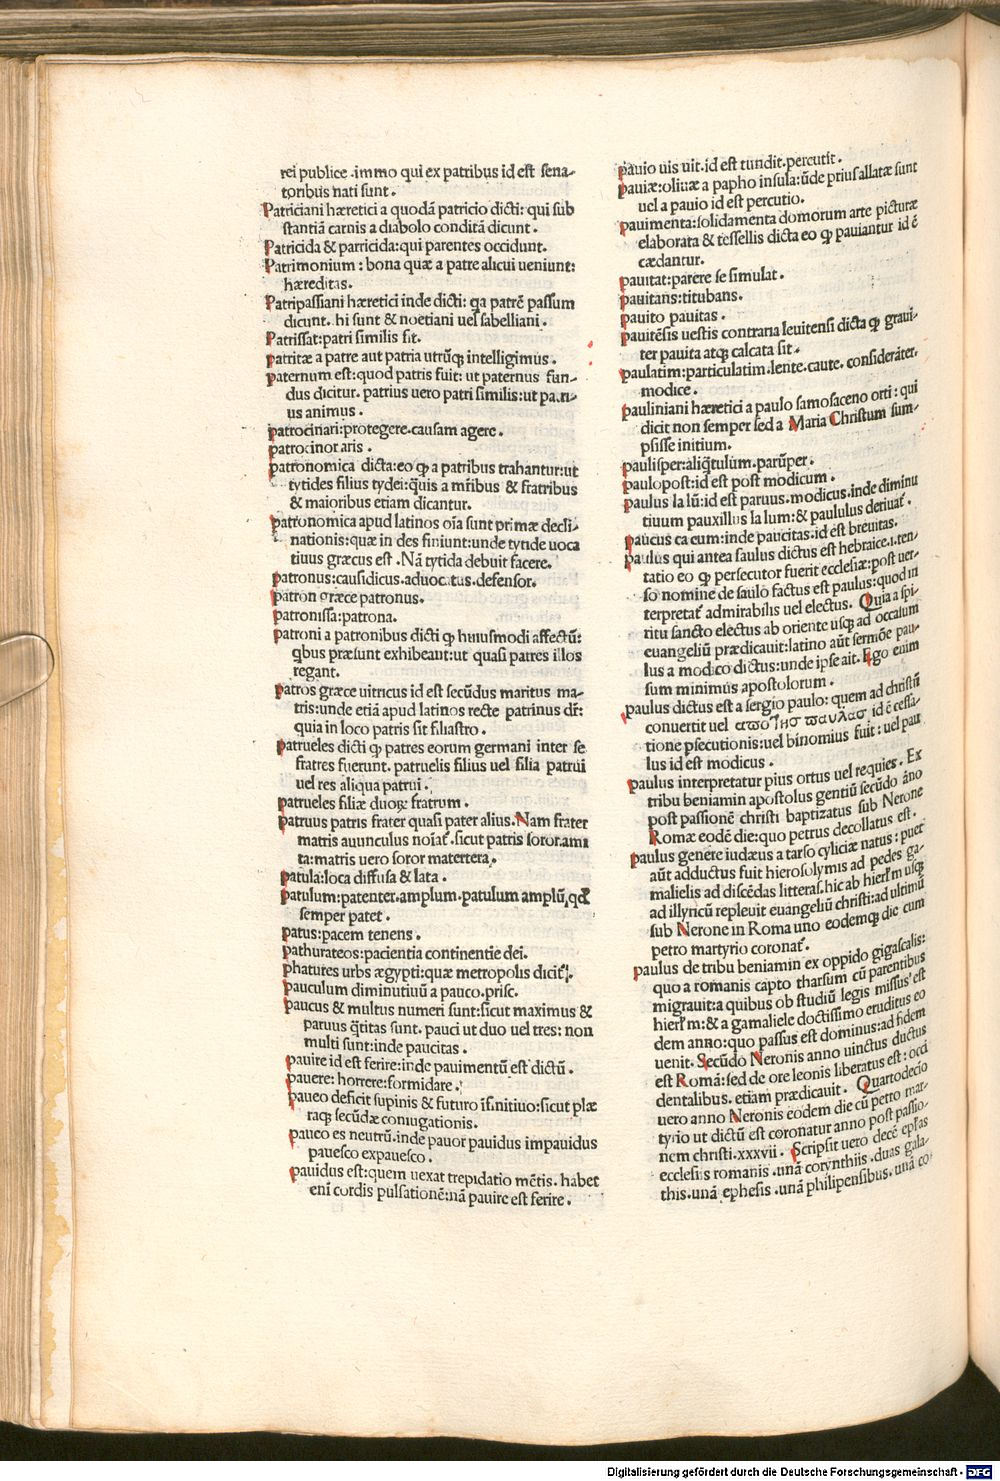 rei publice .immo qui ex patribus id est sena-
toribus nati sunt .
Patriciani hæretici a quodā patricio dicti: qui sub
stantiā carnis a diabolo conditā dicunt .
Patricida & parricida:qui parentes occidunt.
Patrimonium : bona quæ a patre alicui ueniunt:
hæreditas.
Patripassiani hæretici inde dicti: qa patrē passum
dicunt. hi sunt & noetiani uel sabelliani .
Patrissat:patri similis fit.
patritæ a patre aut patria utrūq; intelligimus .
paternum est:quod patris fuit: ut paternus fun-
dus dicitur. patrius uero patri similis:ut patri-
us animus .
patrocinari:protegere.causam agere .
patrocinor aris .
patronomica dicta:eo ꝙ a patribus trahantur:ut
tytides filius tydei:q̄uis a mr̄ibus & fratribus
& maioribus etiam dicantur.
patronomica apud latinos oīa sunt primæ decli-
nationis:quæ in des finiunt:unde tytide uoca
tiuus græcus est . Nā tytida debuit facere.
patronus:causidicus.aduocatus.defensor.
patron græce patronus.
patronissa:patrona.
patroni a patronibus dicti ꝙ huiusmodi affectū:
q̄bus præsunt exhibeant:ut quasi patres illos
regant.
patros græce uitricus id est secūdus maritus ma-
tris:unde etiā apud latinos recte patrinus dr̄:
quia in loco patris sit filiastro .
patrueles dicti ꝙ patres eorum germani inter se
fratres fuerunt. patruelis filius uel filia patrui
uel res aliqua patrui .
patrueles filiæ duoꝝ fratrum .
patruus patris frater quasi pater alius.Nam frater
matris auunculus noīat᷑ .sicut patris soror.ami
ta:matris uero soror matertera .
patula:loca diffusa & lata .
patulum:patenter.amplum.patulum amplū,qd
semper patet .
patus:pacem tenens .
pathurateos:pacientia continentie dei.
phatures urbs ægypti:quæ metropolis dicit᷑.
pauculum diminutiuū a pauco.prisc.
paucus & multus numeri sunt:sicut maximus &
paruus q̄titas sunt. pauci ut duo uel tres: non
multi sunt:inde paucitas .
pauire id est ferire:inde pauimentū est dictū .
pauere: horrere:formidare .
paueo deficit supinis & futuro īfinitiuo:sicut plæ
raq; secūdæ coniugationis.
paueo es neutrū.inde pauor pauidus impauidus
pauesco expauesco .
pauidus est:quem uexat trepidatio mētis. habet
enī cordis pulsationē:nā pauire est ferire .
pauio uis uit.id est tundit.percutit .
pauiæ:oliuæ a papho insula:ūde prius allatæ sunt
uel a pauio id est percutio.
pauimenta:solidamenta domorum arte picturæ
elaborata & tessellis dicta eo ꝙ pauiantur id ē
cædantur.
pauitat:parere se simulat .
pauitans:titubans.
pauito pauitas .
pauitēsis uestis contraria leuitensi dicta ꝙ graui-
ter pauita atq; calcata sit .
paulatim:particulatim.lente.caute. consideráter.
modice .
pauliniani hæretici a paulo samosaceno orti : qui
dicit non semper sed a Maria Christum sum-
psisse initium.
paulisper:aliq̄tulum.parūper .
paulopost:id est post modicum .
paulus la lū:id est paruus.modicus.inde diminu
tiuum pauxillus la lum:& paululus deriuat᷑ .
paucus ca cum:inde paucitas.id est breuitas.
paulus qui antea saulus dictus est hebraice.i.ten-
tatio eo ꝙ persecutor fuerit ecclesiæ:post uer-
so nomine de saulo factus est paulus:quod in
terpretat᷑ admirabilis uel electus. Quia a spi-
ritu sancto electus ab oriente usq; ad occasum
euangeliū prædicauit:latino aūt sermōe pau-
lus a modico dictus:unde ipse ait. Ego enim
sum minimus apostolorum .
paulus dictus est a sergio paulo: quem ad christū
conuertit uel id ē cessa-
tione psecutionis:uel binomius fuit : uel pau
lus id est modicus .
paulus interpretatur pius ortus uel requies. Ex
tribu beniamin apostolus gentiū secūdo āno
post passionē christi baptizatus sub Nerone
Romæ eodē die:quo petrus decollatus est .
paulus genere iudæus a tarso cyliciæ natus : puer
aūt adductus fuit hierosolymis ad pedes ga-
malielis ad discēdas litteras.hic ab hierl̄m usq;
ad illyricū repleuit euangeliū christi:ad ultimū
sub Nerone in Roma uno eodemq; die cum
petro martyrio coronat᷑.
paulus de tribu beniamin ex oppido gigascalis:
quo a romanis capto tharsum cū parentibus
migrauit:a quibus ob studiū legis missus est
hierl̄m:& a gamaliele doctissimo eruditus eo
dem anno:quo passus est dominus:ad fidem
uenit. Secūdo Neronis anno uinctus ductus
est Romā:sed de ore leonis liberatus est : occi
dentalibus. etiam prædicauit . Quartodecio
uero anno Neronis eodem die cū petro mar-
tyrio ut dictū est coronatur anno post passio-
nem christi.xxxvii . Scripsit uero decē ep̄las
ecclesiis romanis .unā corynthiis .duas gala-
this.unā ephesis .unā philipensibus. unā co
Digitalisierung gefördert durch die Deutsche Forschungsgemeinschaft - DFG